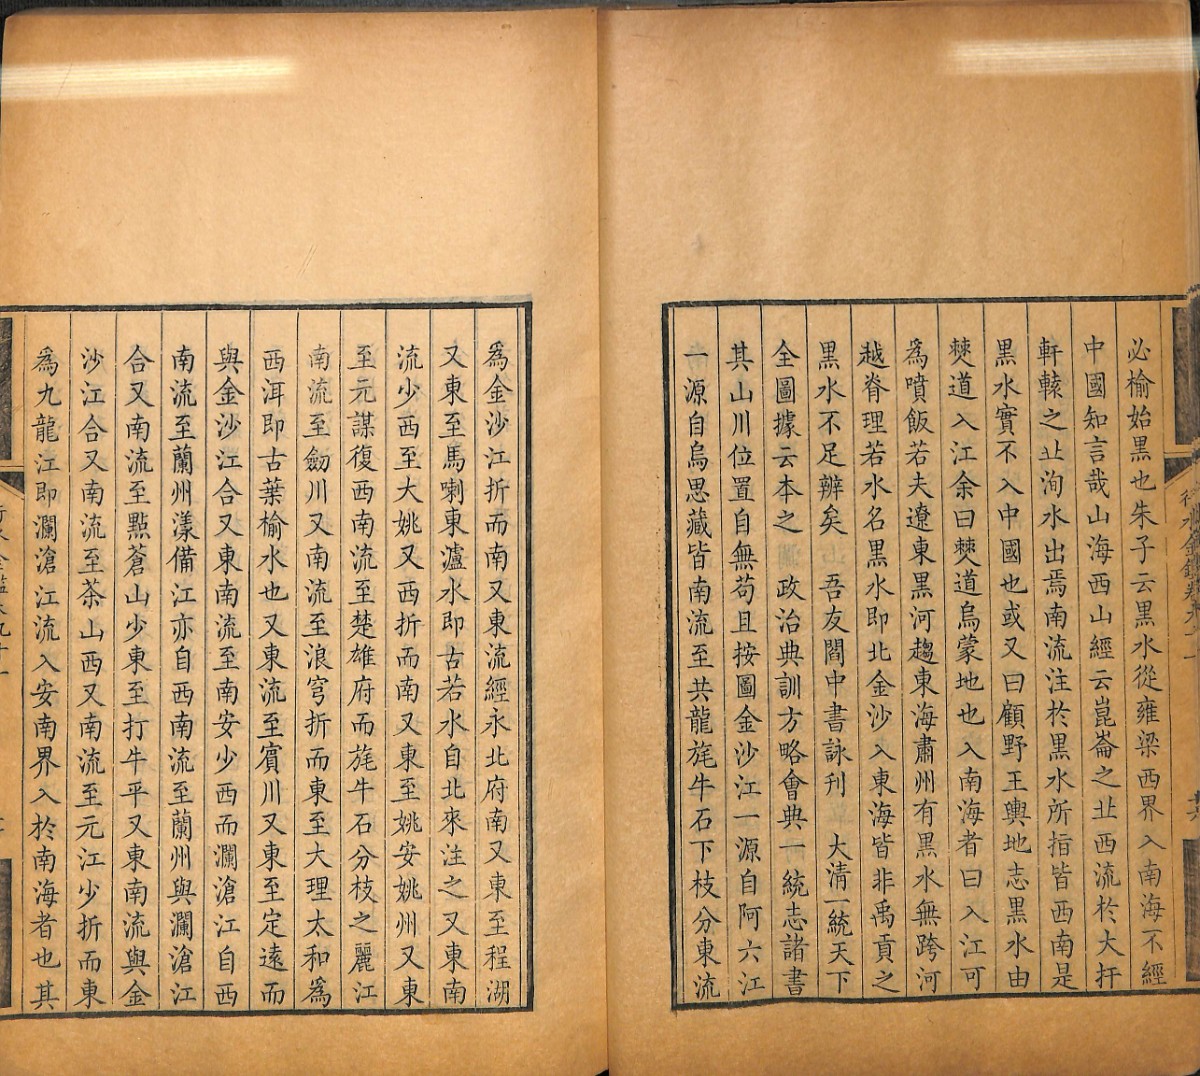 必榆始黑也朱子云黑水從雍梁西界入南海不經
中國知言哉山海西山經云崑崙之丠西流於大杅
軒轅之丠洵水出焉南流注於黑水所指皆西南是
黑水實不入中國也或又曰顧野王輿地志黑水由
僰道入江余曰僰道烏蒙地也入南海者曰入江可
為噴飯若夫遼東黑河趨東海肅州有黑水無跨河
越脊理若水名黑水即北金沙入東海皆非禹貢之
黑水不足辨矣 吾友閻中書詠刊 大清一統天下
全圖據云本之 政治典訓方略會典一統志諸書
其山川位置自無苟且按圖金沙江一源自阿六江
一源自烏思藏皆南流至共龍旄牛石下枝分東流
為金沙江折而南又東流經永北府南又東至程湖
又東至馬喇東瀘水即古若水自北來注之又東南
流少西至大姚又西折而南又東至姚安姚州又東
至元謀復西南流至楚雄府而旄牛石分枝之麗江
南流至劒川又南流至浪穹折而東至大理太和為
西洱即古葉榆水也又東流至賓川又東至定遠而
與金沙江合又東南流至南安少西而瀾滄江自西
南流至蘭州漾備江亦自西南流至蘭州與瀾滄江
合又南流至點蒼山少東至打牛平又東南流與金
沙江合又南流至茶山西又南流至元江少折而東
為九龍江即瀾滄江流入安南界入於南海者也其